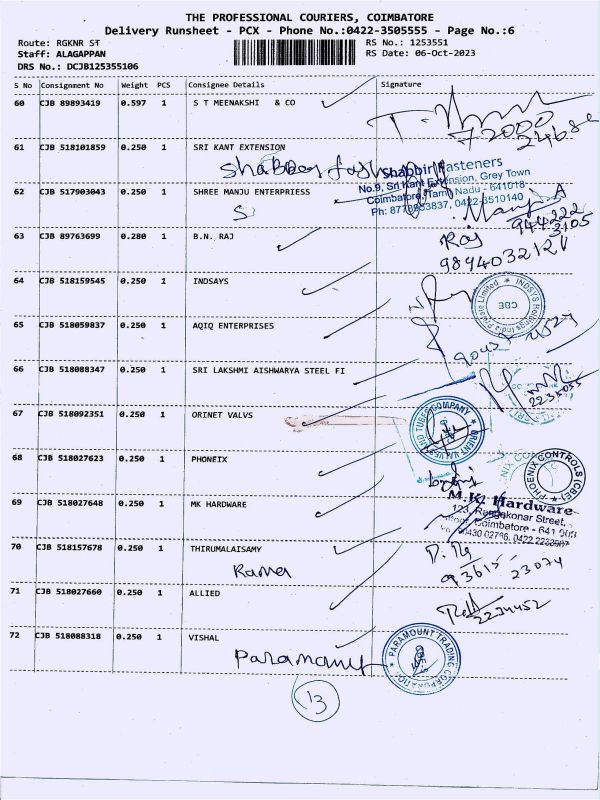 THE PROFESSIONAL COURIERS, COIMBATORE
Delivery Runsheet - PCX - Phone No.:0422-3505555 - Page No.:6
Route: RGKNR ST
RS No.: 1253551
Staff: ALAGAPPAN
RS Date: 06-Oct-2023
DRS No.: DCJB125355106
S No Consignment No Weight PCS Consignee Details Signature
60 CJB 89893419 0.597 1 S T MEENAKSHI & CO
61 CJB 518101859 0.250 1 SRI KANT EXTENSION
Shabbir Fasteners
No.9, Sri Kant Extension, Grey Town
Coimbatore, Tamil Nadu - 641018
62 CJB 517903043 0.250 1 SHREE MANJU ENTERPRIESS
63 CJB 89763699 0.280 1 B.N. RAJ
Raj
9894032121
64 CJB 518159545 0.250 1 INDSAYS
INDSYS Holdings India Private Limited
CBE
65 CJB 518059837 0.250 1 AQIQ ENTERPRISES
66 CJB 518088347 0.250 1 SRI LAKSHMI AISHWARYA STEEL FI
67 CJB 518092351 0.250 1 ORINET VALVS
68 CJB 518027623 0.250 1 PHONEIX
PHOENIX CONTROLS (CBE)
69 CJB 518027648 0.250 1 MK HARDWARE
M.K. Hardware
123, Rangakonar Street,
Coimbatore - 641 009
70 CJB 518157678 0.250 1 THIRUMALAISAMY
Rama
71 CJB 518027660 0.250 1 ALLIED
72 CJB 518088318 0.250 1 VISHAL
Paramount
PARAMOUNT TRADING CORPORATION
13